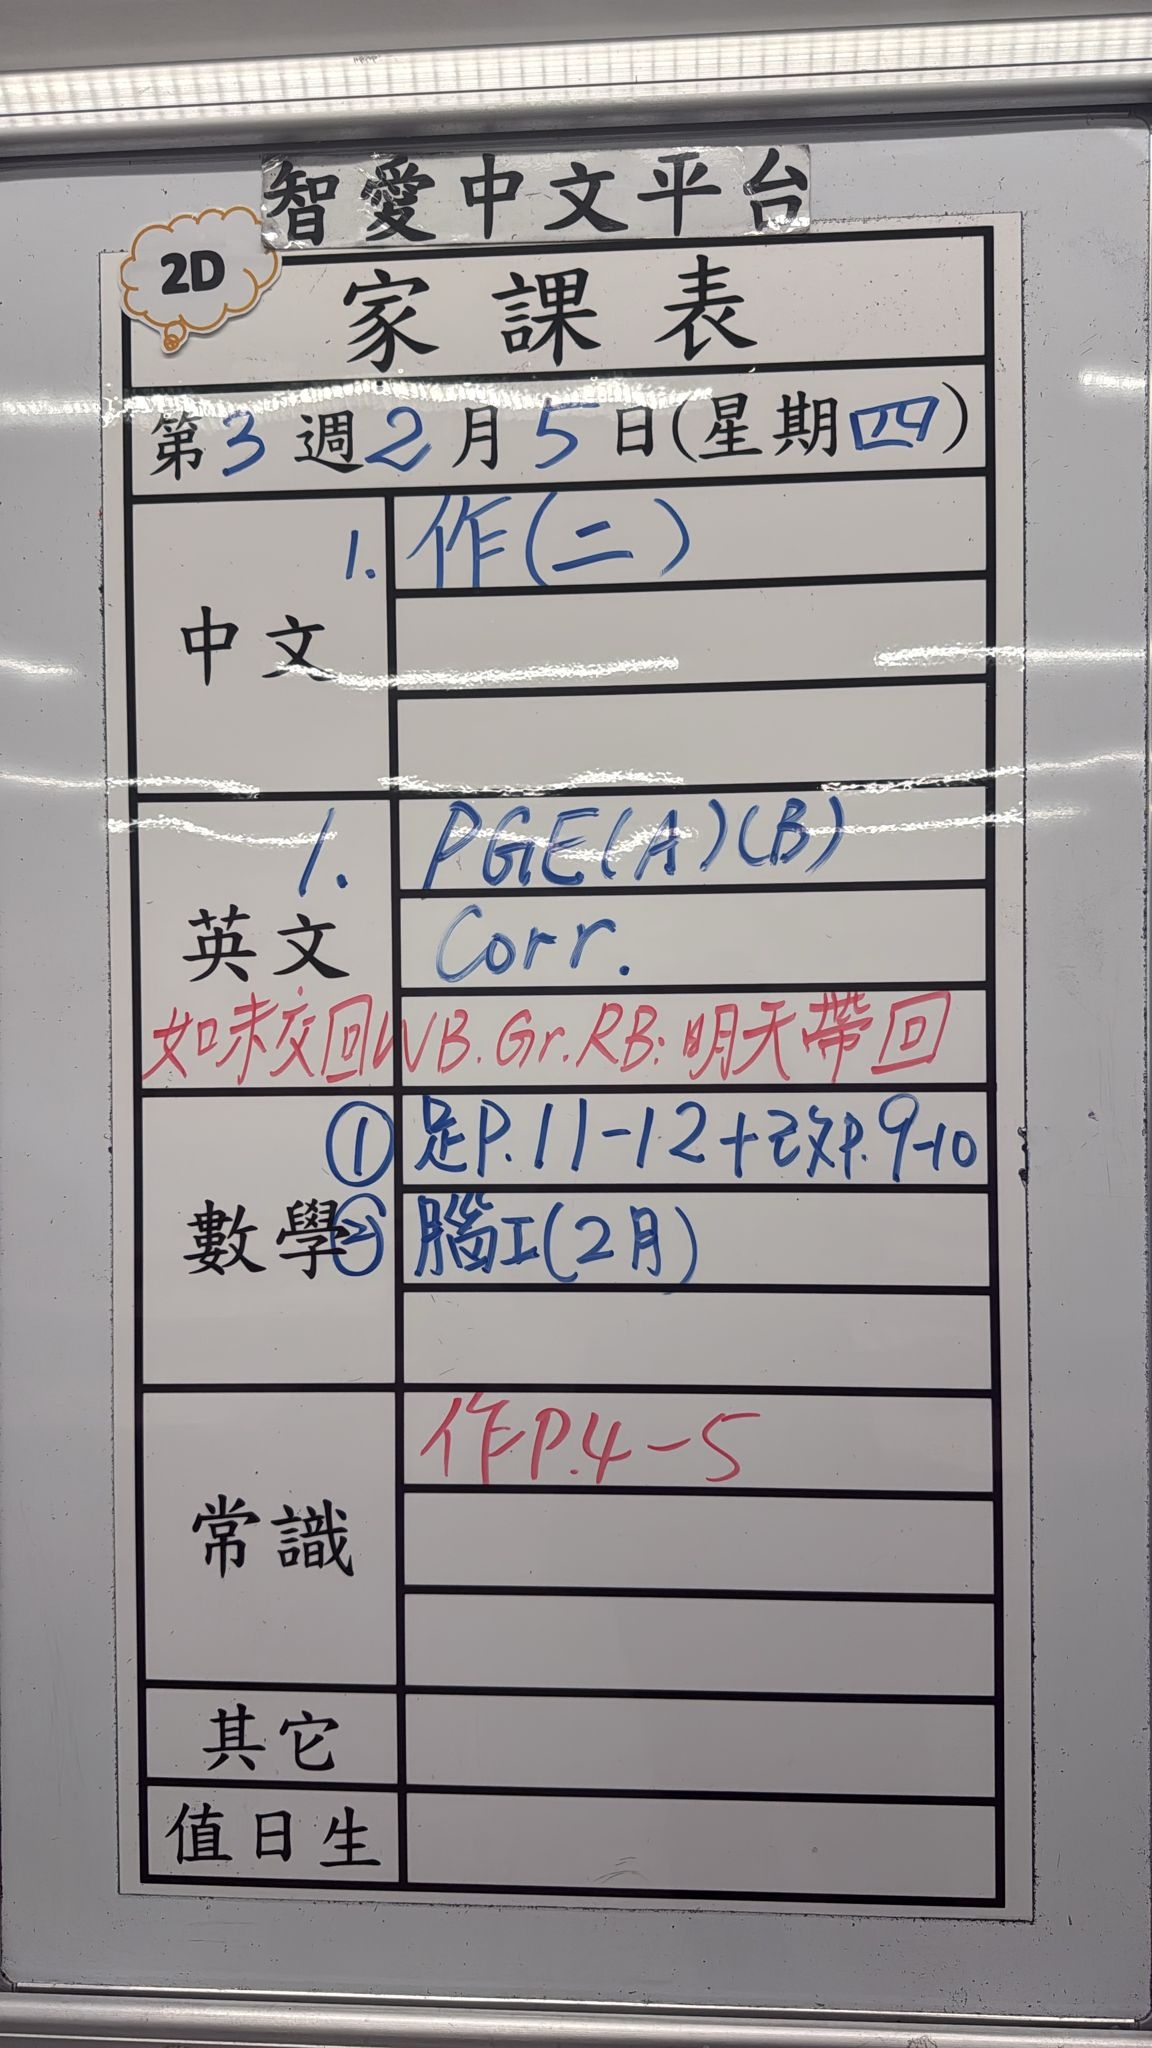 智愛中文平台
2D
家課表
第3週2月5日(星期四)
中文
1. 作(二)
英文
1. PGE(A)(B)
Corr.
如未交回WB.Gr.RB:明天帶回
數學
① 足P.11-12+改P.9-10
② 腦工(2月)
常識
作P.4-5
其它
值日生